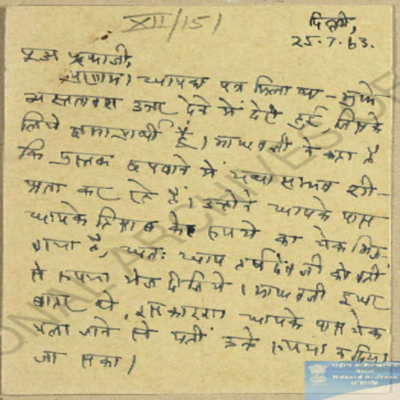 XII/151
दिल्ली,
25.7.63.
पूज्य
प्रणाम! आपका पत्र मिला था - मुझे
व्यस्तावश उत्तर देने में देरी हुई जिसके
लिये क्षमाप्रार्थी हूँ। माधवजी ने कहा है
कि पुस्तक छपवाने में यथा सम्भव शी-
घ्रता कर रहे हैं। उन्होंने आपके पास
आपके हिसाब के रुपये का चेक भिज-
वाया है, अतः आप जी को वहीं
से रुपया भेज दीजिये। माधवजी इधर
बाहर थे, इस कारण आपके पास चेक
चला जाने से यहाँ उनके रुपया न दिया
जा सका।